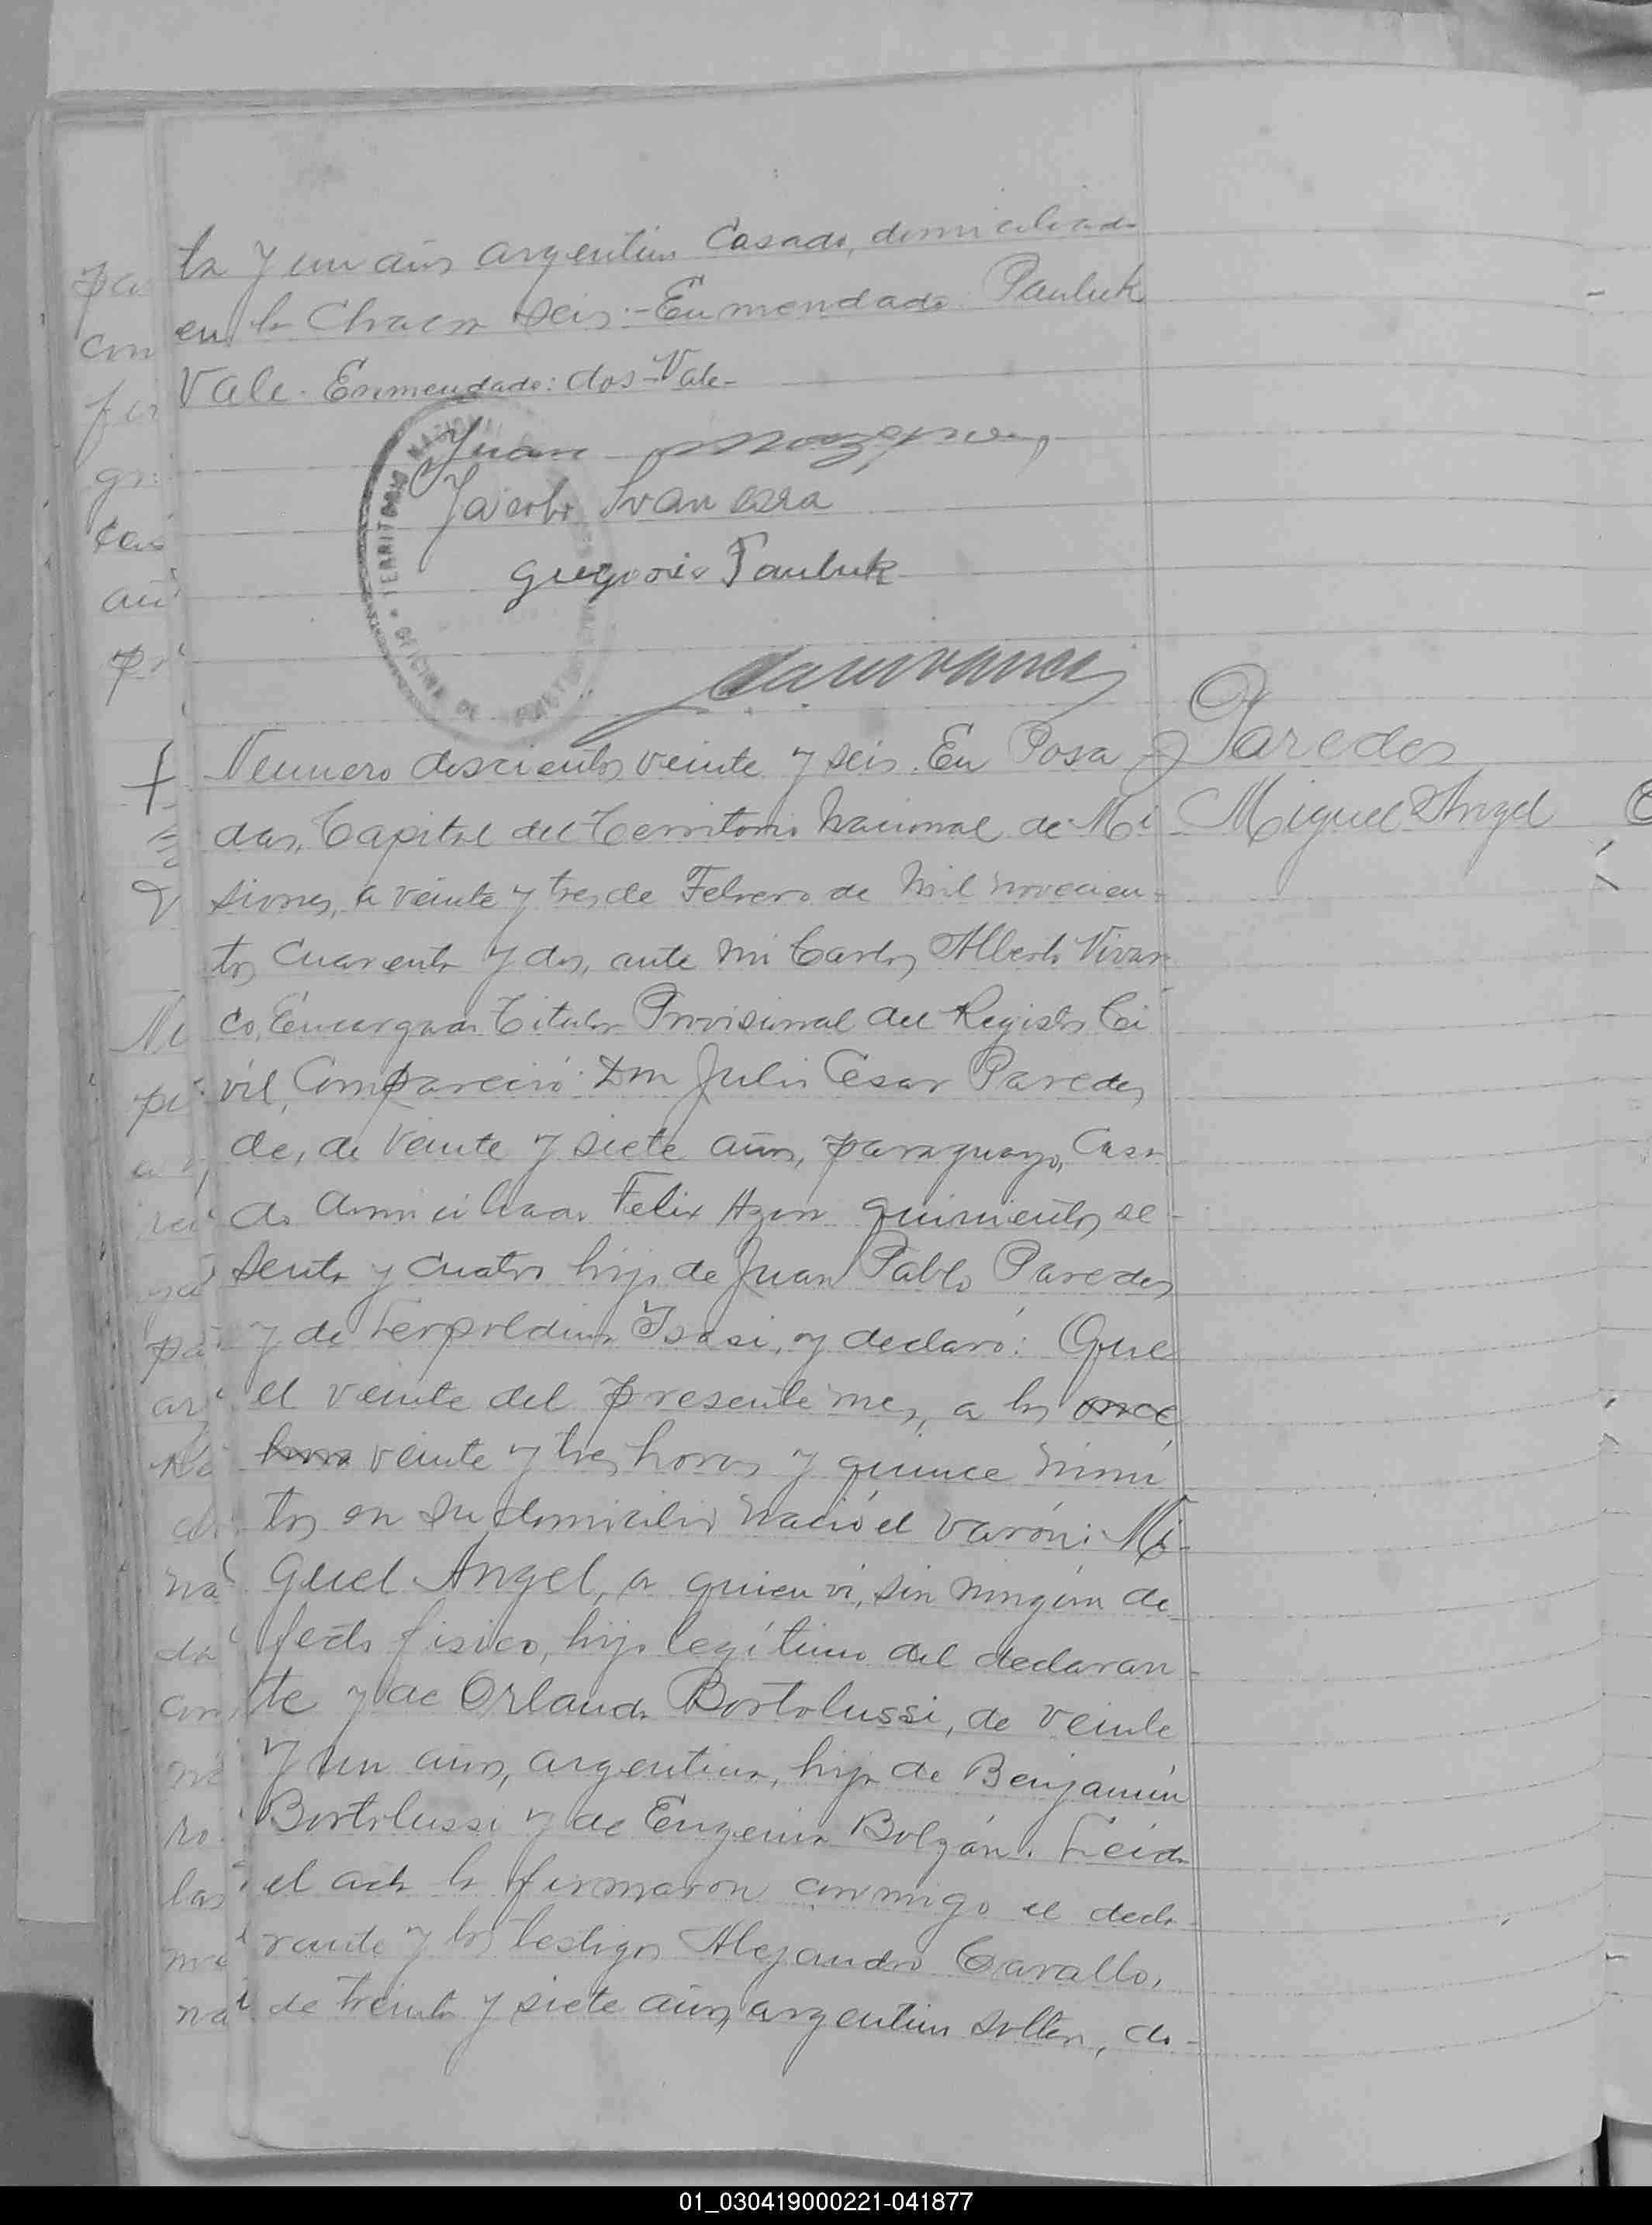 ta y un años argentino Casado, domiciliado
en la Chacra seis.- Enmendado Pauluk
Vale. Enmendado: dos-Vale-
Juan
Jacobo
Gregorio Pauluk
TERRITORIO NACIONAL
OFICINA DE
Numero doscientos veinte y seis. En Posa
Paredes
das, Capital del Territorio Nacional de Mi
Miguel Angel
siones, a veinte y tres de Febrero de mil novecien-
tos cuarenta y dos, ante mi Carlos Alberto Vivan
co, Encargado Titular Provisional del Registro Ci
vil, Compareció: Don Julio Cesar Paredes
de, de veinte y siete años, paraguayo, Casa
do domiciliado Felix Azara quinientos se-
senta y cuatro hijo de Juan Pablo Paredes
y de Leopoldina Isasi, y declaró: Que
el veinte del presente mes, a las once
horas veinte y tres horas y quince minu
tos en su domicilio nació el varón: Mi-
guel Angel, a quien vi, sin ningún de-
fecto fisico, hijo legítimo del declaran-
te y de Orlanda Bortolussi, de veinte
y un años, argentina, hija de Benjamín
Bortolussi y de Eugenia Bolzán. Leida
el acta la firmaron conmigo el decla-
rante y los testigos Alejandro Cavallo,
de treinta y siete años, argentino soltero, do-
01_030419000221-041877